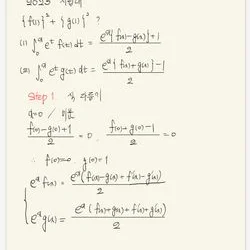 {f(1)}² + {g(1)}² ?
(i) ∫₀ᵃ eᵗ f(t) dt = eᵃ{f(a)-g(a)}+1 / 2
(ii) ∫₀ᵃ eᵗ g(t) dt = eᵃ{f(a)+g(a)}-1 / 2
Step 1 식 다듬기
a=0 / 미분
f(0)-g(0)+1 / 2 = 0. f(0)+g(0)-1 / 2 = 0
∴ f(0)=0. g(0)=1
eᵃ f(a) = eᵃ(f(a)-g(a)+f'(a)-g'(a)) / 2
eᵃ g(a) = eᵃ(f(a)+g(a)+f'(a)+g'(a)) / 2